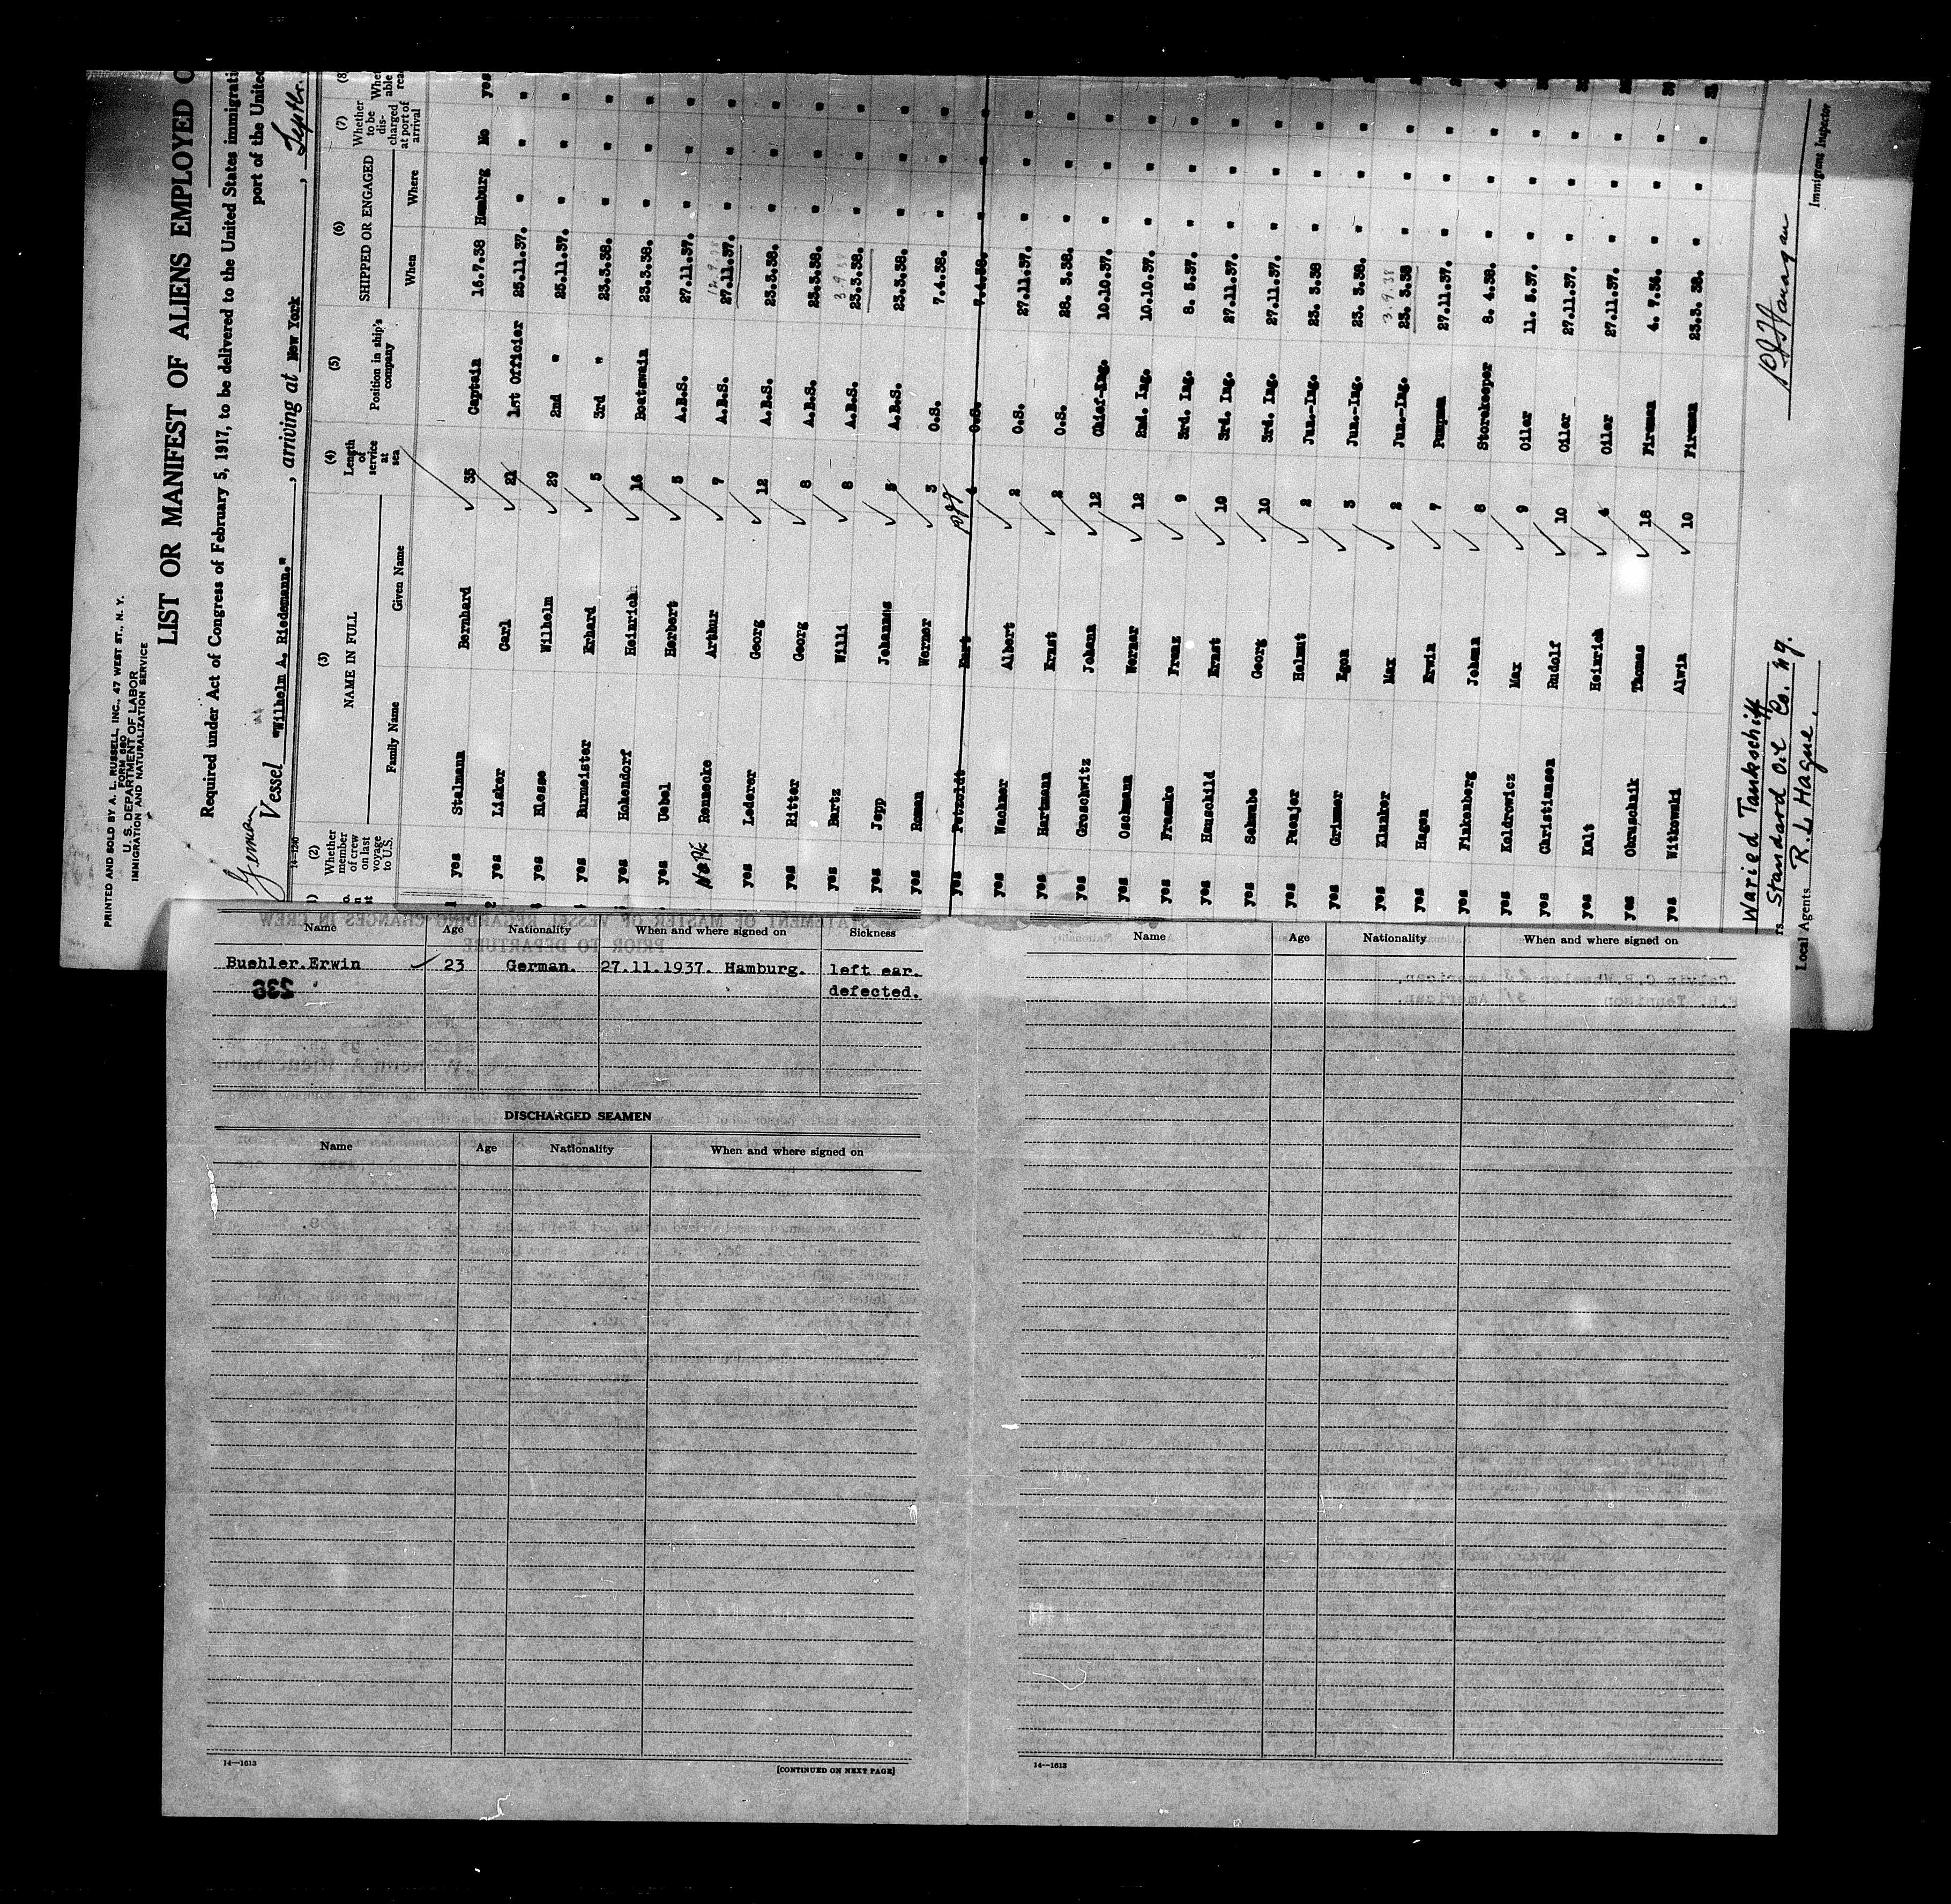 PRINTED AND SOLD BY A. L. RUSSELL, INC., 47 WEST ST., N. Y.
FORM 680
U. S. DEPARTMENT OF LABOR
IMMIGRATION AND NATURALIZATION SERVICE
LIST OR MANIFEST OF ALIENS EMPLOYED O
Required under Act of Congress of February 5, 1917, to be delivered to the United States immigrati
port of the United
German
Vessel "Wilhelm A. Riedemann." , arriving at New York , Septbr.
14—1240
(2) (3) (4) (5) (6) (7) (8)
Whether member of crew on last voyage to U.S. NAME IN FULL Length of service at sea Position in ship's company SHIPPED OR ENGAGED Whether to be discharged at port of arrival
Family Name Given Name When Where
1 yes Stalmann Bernhard 35 Captain 16.7.38 Hamburg No yes
2 yes Lisker Carl 21 1st Officier 25.11.37. " " "
3 yes Klesse Wilhelm 29 2nd " 25.11.37. " " "
4 yes Burmeister Erhard 5 3rd " 23.3.38. " " "
yes Hohendorf Heinrich 16 Boatswain 23.3.38. " " "
yes Uebel Herbert 5 A.B.S. 27.11.37. " " "
Rennecke Arthur 7 A.B.S. 27.11.37. " " "
yes Lederer Georg 12 A.B.S. 23.3.38. " " "
yes Ritter Georg 8 A.B.S. 23.3.38. " " "
3.9.38
yes Bartz Willi 8 A.B.S. 23.3.38. " " "
yes Jepp Johannes 5 A.B.S. 23.3.38. " " "
yes Roman Werner 3 O.S. 7.4.38. " " "
yes Petzoldt Kurt 4 O.S. 7.4.38. " " "
yes Wachner Albert 2 O.S. 27.11.37. " " "
yes Hartmann Ernst 2 O.S. 28. 3.38. " " "
yes Groschwitz Johann 12 Chief-Ing. 10.10.37. " " "
yes Oschmann Werner 12 2nd. Ing. 10.10.37. " " "
yes Framke Franz 9 3rd. Ing. 8. 5.37. " " "
yes Hauschild Ernst 10 3rd. Ing. 27.11.37. " " "
yes Schwabe Georg 10 3rd. Ing. 27.11.37. " " "
yes Puenjer Helmut 2 Jun.-Ing. 23. 3.38 " " "
yes Grimmer Egon 3 Jun.-Ing. 23. 3.38. " " "
3.9.38
yes Klunker Max 2 Jun.-Ing. 23. 3.38 " " "
yes Hagen Erwin 7 Pumpman 27.11.37. " " "
yes Finkenberg Johann 8 Storekeeper 8. 4.38. " " "
yes Koldrowicz Max 9 Oiler 11. 5.37. " " "
yes Christiansen Rudolf 10 Oiler 27.11.37. " " "
yes Kalt Heinrich 4 Oiler 27.11.37. " " "
yes Okruschnik Thomas 18 Fireman 4. 7.36. " " "
yes Witkowski Alwin 10 Fireman 23.3. 38. " " "
Waried Tankschiff
Standard Oil Co. NJ.
Local Agents R. L. Hague.
Immigrant Inspector
Name Age Nationality When and where signed on Sickness
Buehler.Erwin 23 German. 27.11.1937. Hamburg. left ear.
defected.
236
DISCHARGED SEAMEN
Name Age Nationality When and where signed on
14—1613
[CONTINUED ON NEXT PAGE]
Name Age Nationality When and where signed on
14—1613